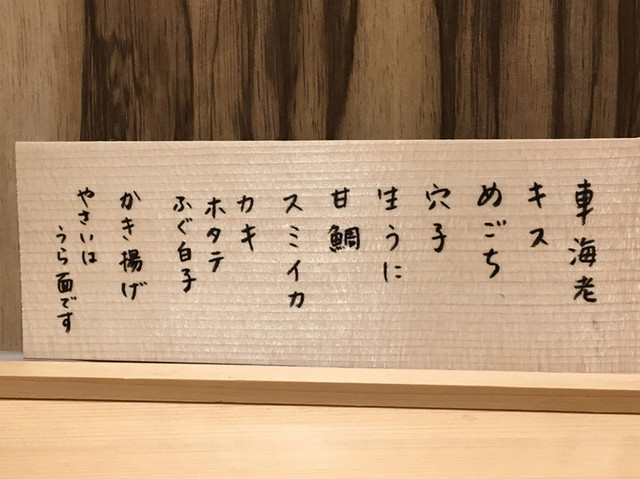 車海老
キス
めごち
穴子
生うに
甘鯛
スミイカ
カキ
ホタテ
ふぐ白子
かき揚げ
やさいは
うら面です